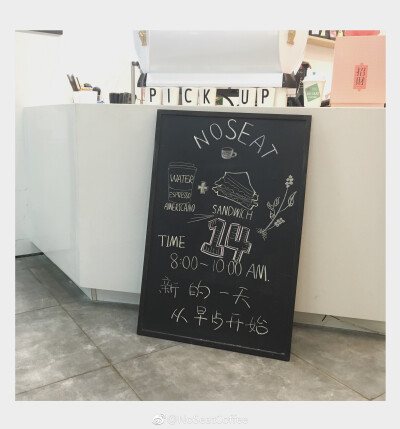 PICK UP
NOSEAT
WATER
ESPRESSO
AMERICANO
+
SANDWICH
14
TIME
8:00-10:00 AM.
新的一天
从早点开始
@NoSeatCoffee